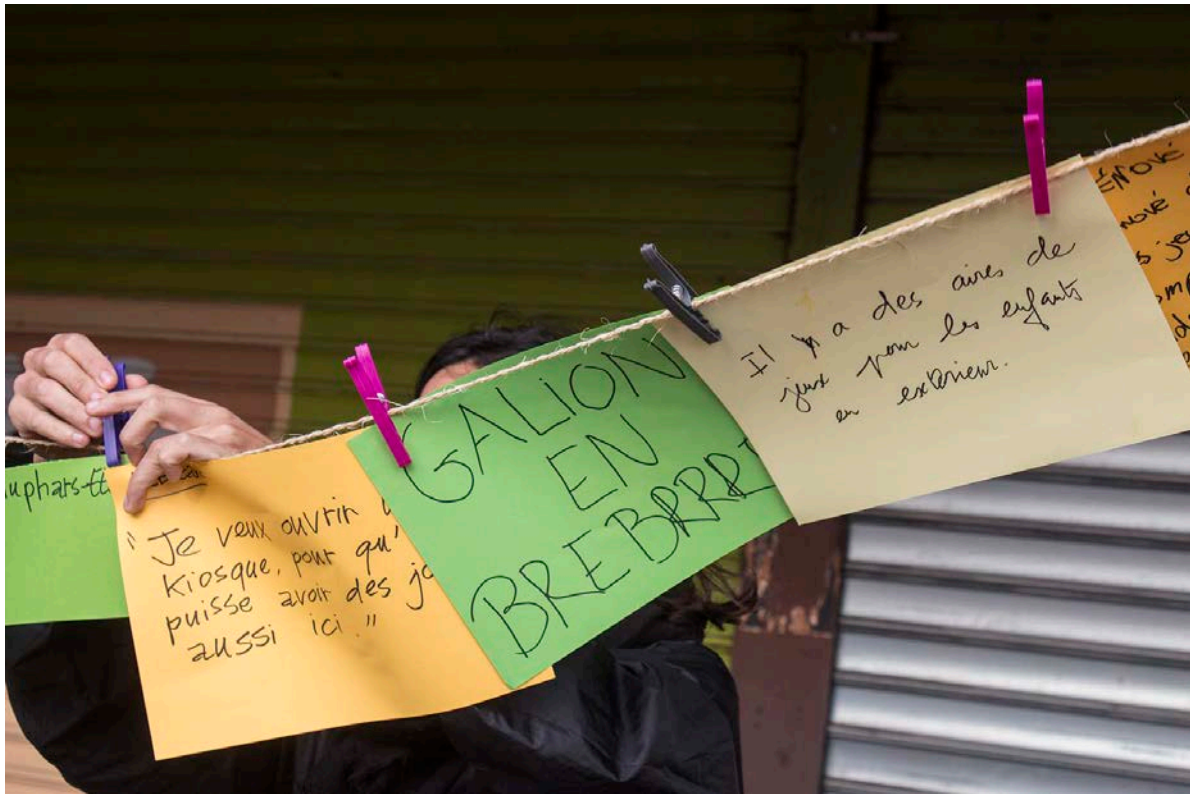 uphars-
"Je veux ouvrir
kiosque, pour qu'
puisse avoir des jo
aussi ici."
GALION
EN
BREBRRD
Il y a des aires de
jeux pour les enfants
en extérieur.
ÉNOVÉ
nové